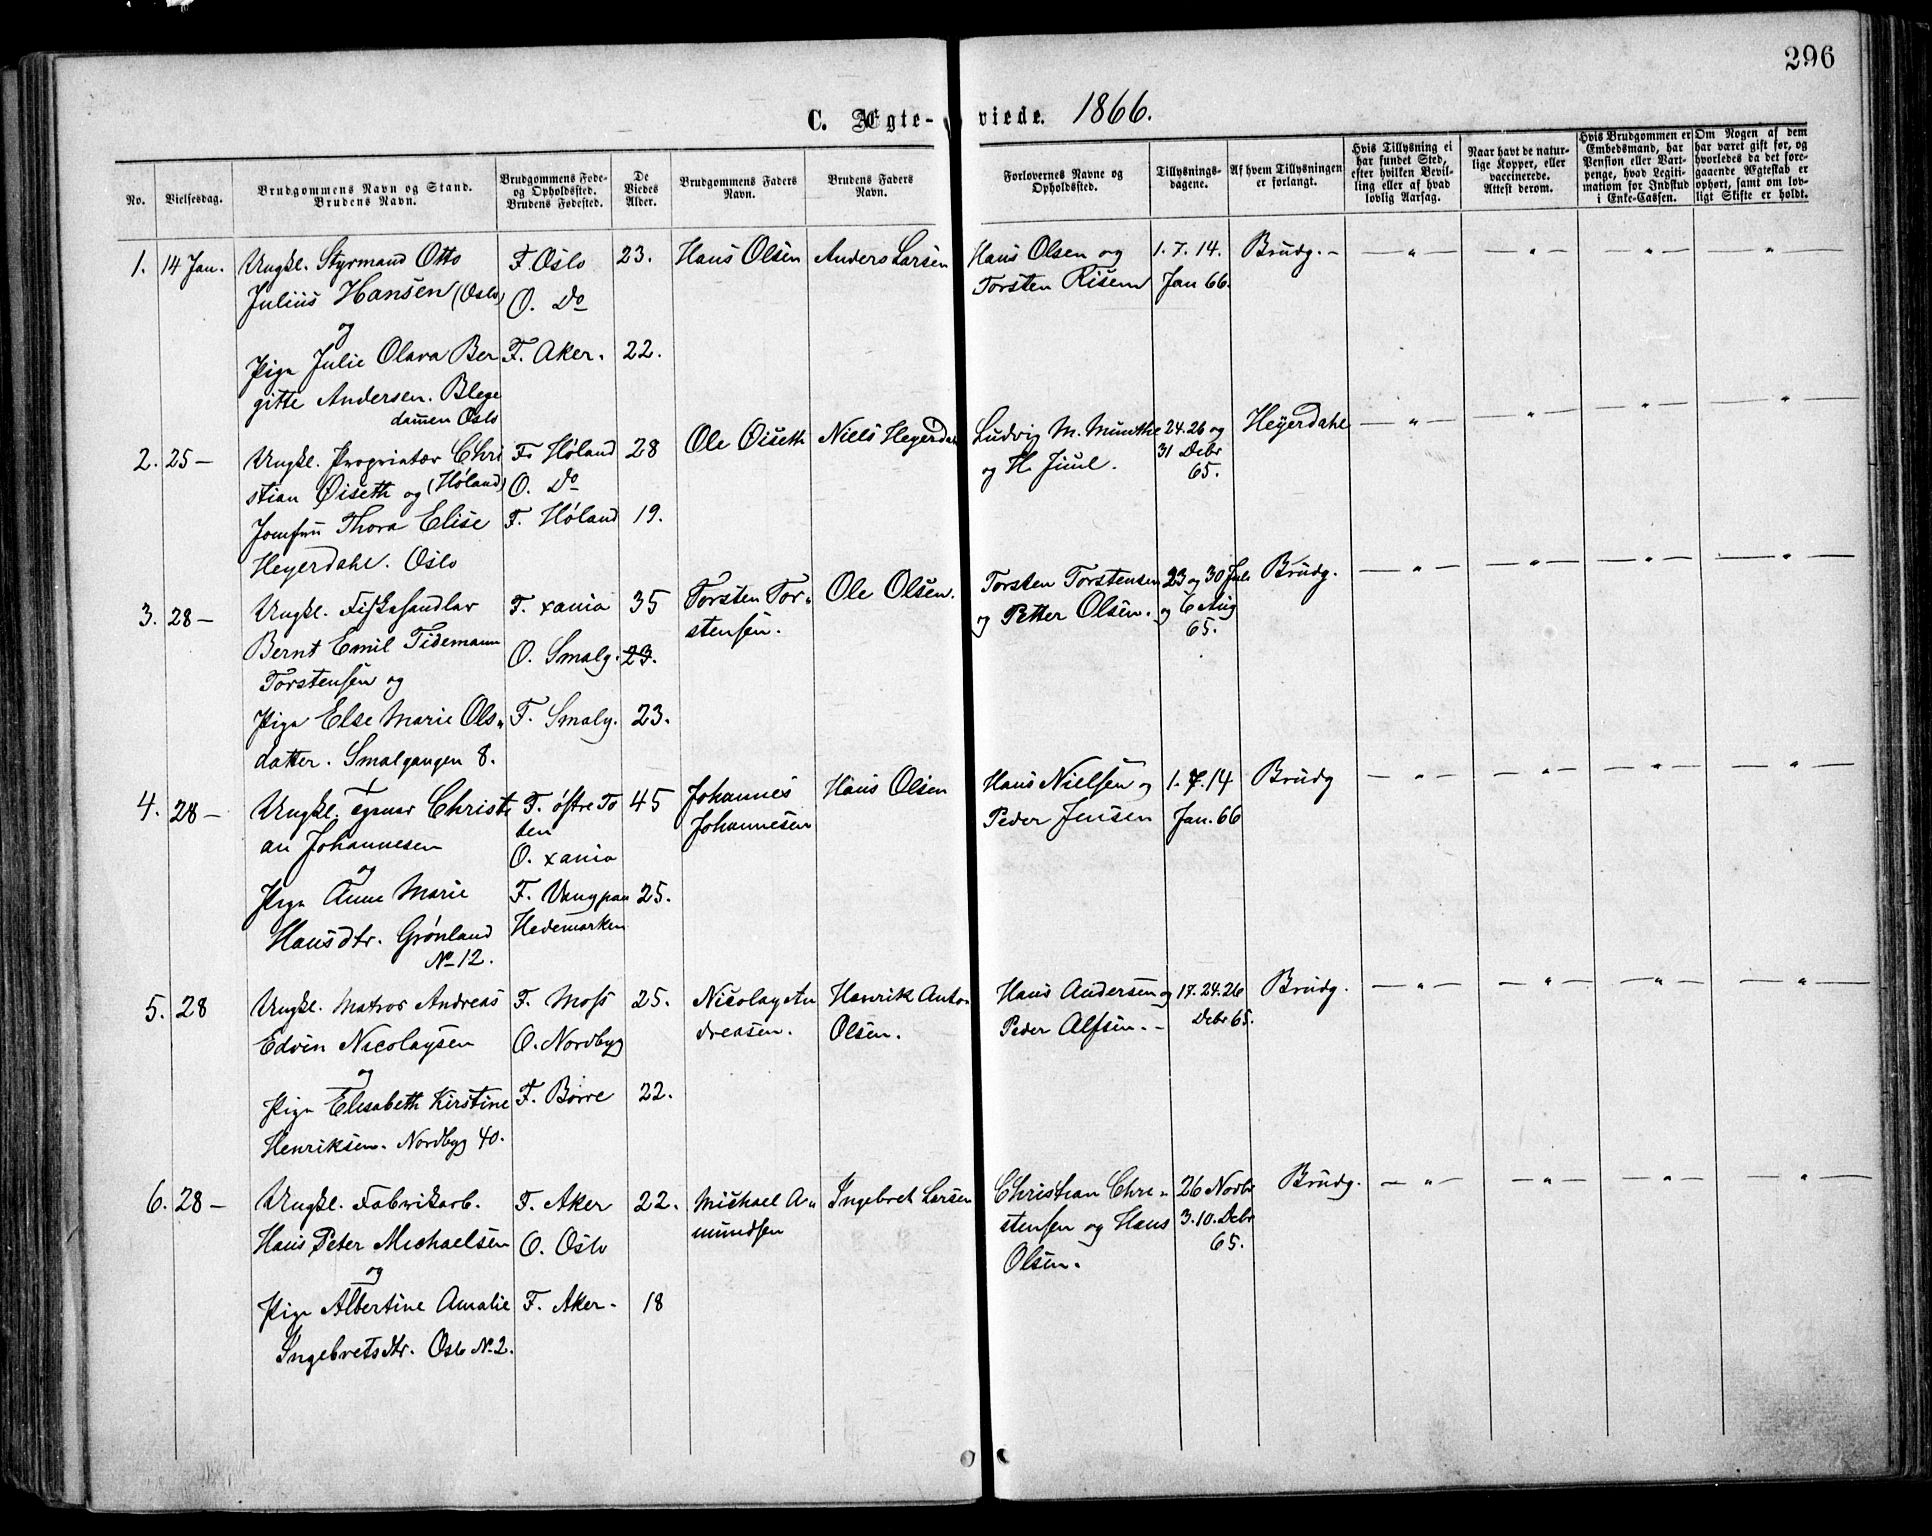 296
C. Ægte-viede. 1866.
No.
Vielsesdag.
Brudgommens Navn og Stand.
Brudens Navn.
Brudgommens Føde-
og Opholdssted.
Brudens Fødested.
De
Viedes
Alder.
Brudgommens Faders
Navn.
Brudens Faders
Navn.
Forlovernes Navne og
Opholdssted.
Tillysnings-
dagene.
Af hvem Tillysningen
er forlangt.
Hvis Tillysning ei
har fundet Sted,
efter hvilken Bevil-
ling eller af hvad
lovlig Aarsag.
Naar havt de natur-
lige Kopper, eller
vaccinerede.
Attest derom.
Hvis Brudgommen er
Embedsmand, har
Pension eller Vart-
penge, hvad Legiti-
mation for Indskud
i Enke-Cassen.
Om Nogen af dem
har været gift før, og
hvorledes da det fore-
gaaende Ægteskab er
ophørt, samt om lov-
ligt Skifte er holdt.
1. 14 Jan. Ungkl. Styrmand Otto F. Oslo 23. Hans Olsen Anders Larsen Hans Olsen og 1. 7. 14. Brudg. — " — — " — — " — — " —
Julius Hansen (Oslo) O. Do Torsten Risem Jan 66.
og
Pige Julie Olava Ber F. Aker. 22.
gitte Andersen. Blege
damen Oslo
2. 25 — Ungkl. Proprietær Chri F. Høland 28 Ole Øiseth Niels Heyerdahl Ludvig M. Munthe 24. 26 og Heyerdahl — " — — " — — " — — " —
stian Øiseth og (Høland) O. Do og H. Juul. 31 Debr
65.
Jomfru Thora Elise F. Høland 19.
Heyerdahl. Oslo
3. 28 — Ungkl. Fiskehandler F. xania 35 Torsten Tor- Ole Olsen. Torsten Torstensen 23 og 30 Juli Brudg. — " — — " — — " — — " —
Bernt Emil Tidemann O. Smalg. 23. stensen. og Petter Olsen. og 6 Aug
65.
Torstensen og
Pige Else Marie Ols- F. Smalg. 23.
datter. Smalgangen 8.
4. 28 — Ungkl. Tømr Christi F. Østre To 45 Johannes Hans Olsen Hans Nielsen og 1. 7. 14 Brudg — " — — " — — " — — " —
an Johannesen ten Johannesen Peder Jensen Jan. 66
O. xania
og
Pige Anne Marie F. Vang paa 25.
Hansdtr. Grønland Hedemarken
No 12.
5. 28 Ungkl. Matros Andreas F. Moss 25. Nicolay An Henrik Anton Hans Andersen og 17. 24. 26 Brudg. — " — — " — — " — — " —
Edvin Nicolaysen O. Nordbyg dreasen. Olsen. Peder Alfsen. — Debr 65.
og
Pige Elisabeth Kirstine F. Borre 22.
Henriksen. Nordbyg 40.
6. 28 — Ungkl. Fabrikarb. F. Aker 22. Michael A- Ingebret Larsen Christian Chri- 26 Novbr Brudg. — " — — " — — " — — " —
Hans Peter Michaelsen O. Oslo mundsen stensen og Hans 3. 10. Debr
Olsen. 65.
og
Pige Albertine Amalie F. Aker. 18
Ingebretsdtr. Oslo No 2.